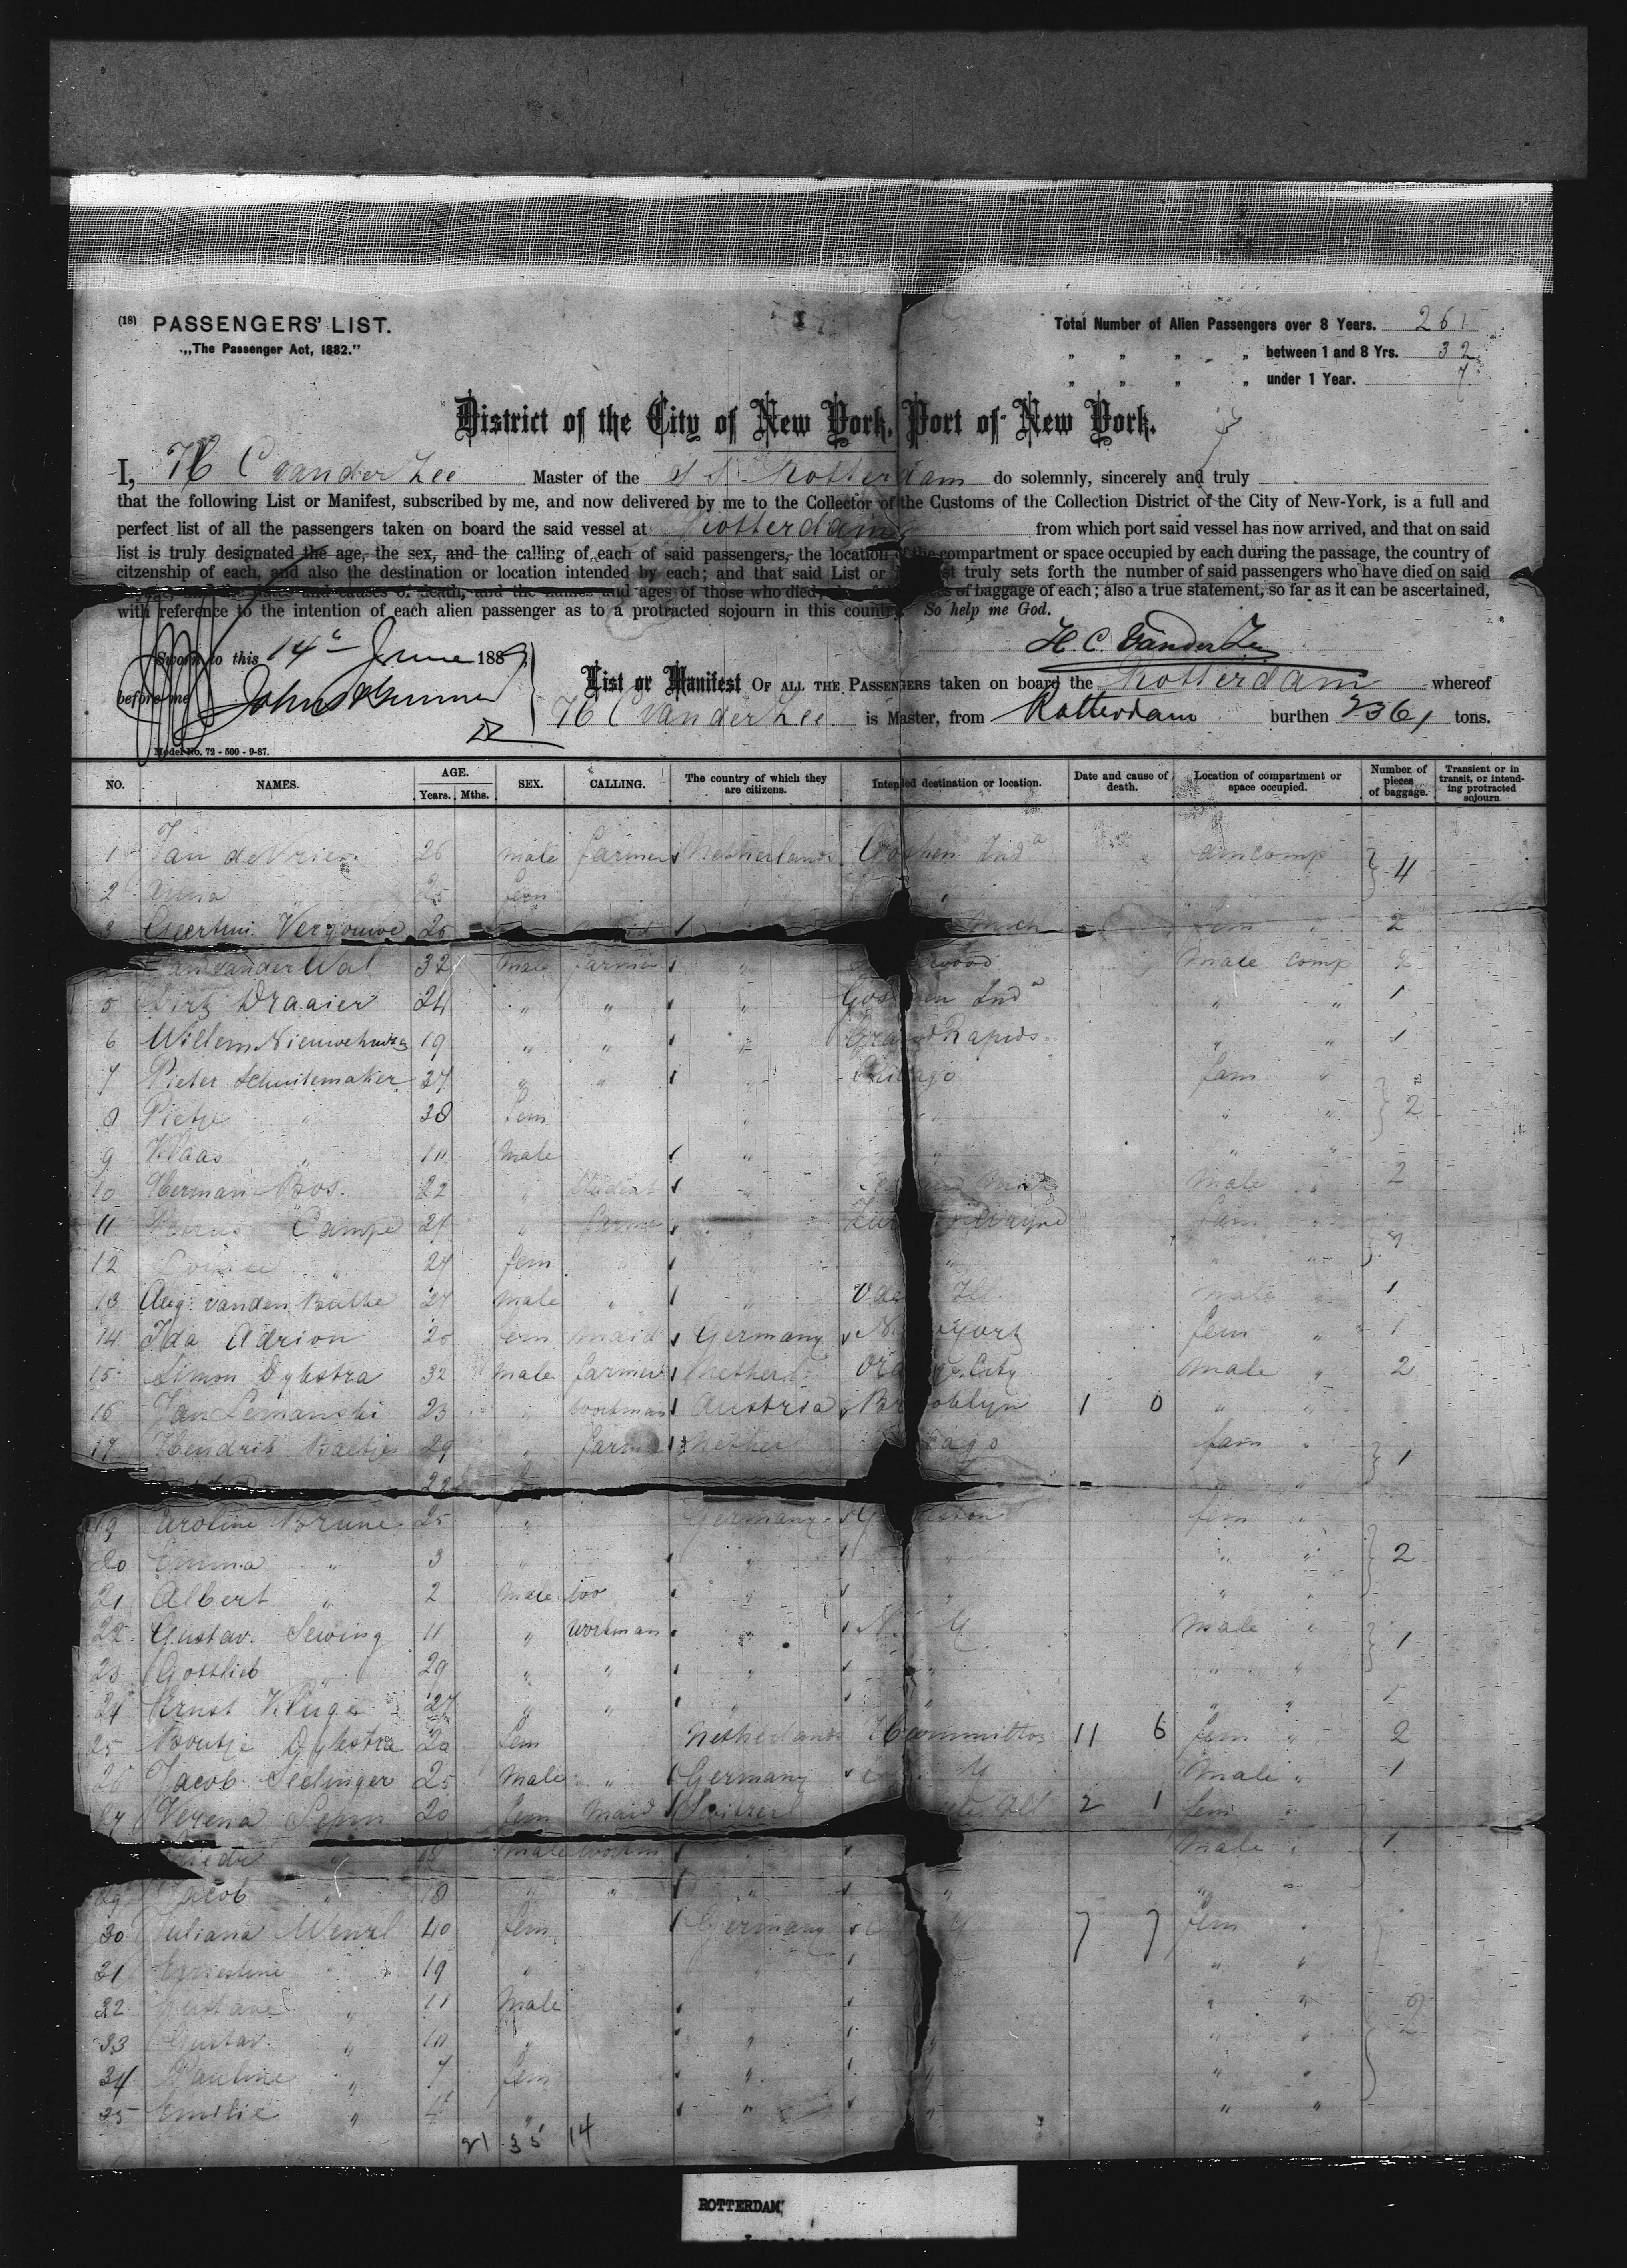 (18) PASSENGERS' LIST.
„The Passenger Act, 1882."
Total Number of Alien Passengers over 8 Years. 261
„ „ „ „ between 1 and 8 Yrs. 32
„ „ „ „ under 1 Year. 7
District of the City of New York, Port of New York.
I, H C vander Zee Master of the SS Rotterdam do solemnly, sincerely and truly
that the following List or Manifest, subscribed by me, and now delivered by me to the Collector of the Customs of the Collection District of the City of New-York, is a full and
perfect list of all the passengers taken on board the said vessel at Rotterdam from which port said vessel has now arrived, and that on said
list is truly designated the age, the sex, and the calling of each of said passengers, the location of the compartment or space occupied by each during the passage, the country of
citzenship of each, and also the destination or location intended by each; and that said List or truly sets forth the number of said passengers who have died on said
and causes of death, and the names and ages of those who died, of baggage of each; also a true statement, so far as it can be ascertained,
with reference to the intention of each alien passenger as to a protracted sojourn in this country. So help me God.
H. C. Vander Zee
Sworn to this 14 June 188
before me John
List or Manifest OF ALL THE PASSENGERS taken on board the Rotterdam whereof
H C vander Zee is Master, from Rotterdam burthen 2361 tons.
Model No. 72 - 500 - 9-87.
NO. NAMES. AGE. Years. Mths. SEX. CALLING. The country of which they are citizens. Intended destination or location. Date and cause of death. Location of compartment or space occupied. Number of pieces of baggage. Transient or in transit, or intending protracted sojourn.
1 Jan de Vries 26 male farmer Netherlands Goshen Inda fam comp 4
2 Anna 25 fem
3 Vergouwe 26 Mich fem „ 2
Jan vander Wal 32 male farmer „ Male comp 2
5 Dirk Draaier 24 „ „ „ Goshen Inda „ „ 1
6 Willem 19 „ „ „ Grand Rapids „ „ 1
7 Pieter Schuitemaker 37 „ „ „ Chicago fam „
8 Pietje „ 38 fem „ „ „ „ 2
9 Klaas „ 10 male „ „ „ „
10 Herman Bos. 22 „ Student „ male „ 2
11 Campe 27 „ farmer „ Wayne fam „
12 „ 27 fem „ „ „ „
13 Aug. vanden Bulke 27 male „ „ Ill. male „ 1
14 Ida Adrion 20 fem maid Germany New York fem „ 1
15 Simon Dykstra 32 male farmer Netherl. Orange City male „ 2
16 Jan Lemanski 23 „ workman Austria Brooklyn 1 0 „ „
17 Hendrik Baltjes 29 „ farmer Netherl Chicago fam „ 1
22
19 Caroline Brune 25 „ Germany fem „
20 Emma „ 3 „ „ „ „ „ 2
21 Albert „ 2 male too „ „ „ „
22 Gustav. Sewing 11 „ workman „ N. Y male „ 1
23 Gottlieb „ 29 „ „ „ „ „ „
24 Ernst Kluge 27 „ „ „ „ „ „ 1
25 Boutje Dykstra 20 fem Netherlands 11 6 fem „ 2
26 Jacob Seelinger 25 male „ Germany Y male „ 1
27 Verena 20 fem maid Switzerl Ill 2 1 fem „
„ 18 male workm „ male „ 1
29 Jacob „ 18 „ „ „ „ „ „
30 Juliana Wenzl 40 fem Germany Y 7 7 fem „
31 Ernestine „ 19 „ „ „ „
32 Gustave „ 11 male „ „ „ 2
33 Gustav. „ 10 „ „ „ „ „
34 Pauline „ 7 fem „ „ „ „
35 Emilie „ 4 „ „ „ „ „
21 35 14
ROTTERDAM